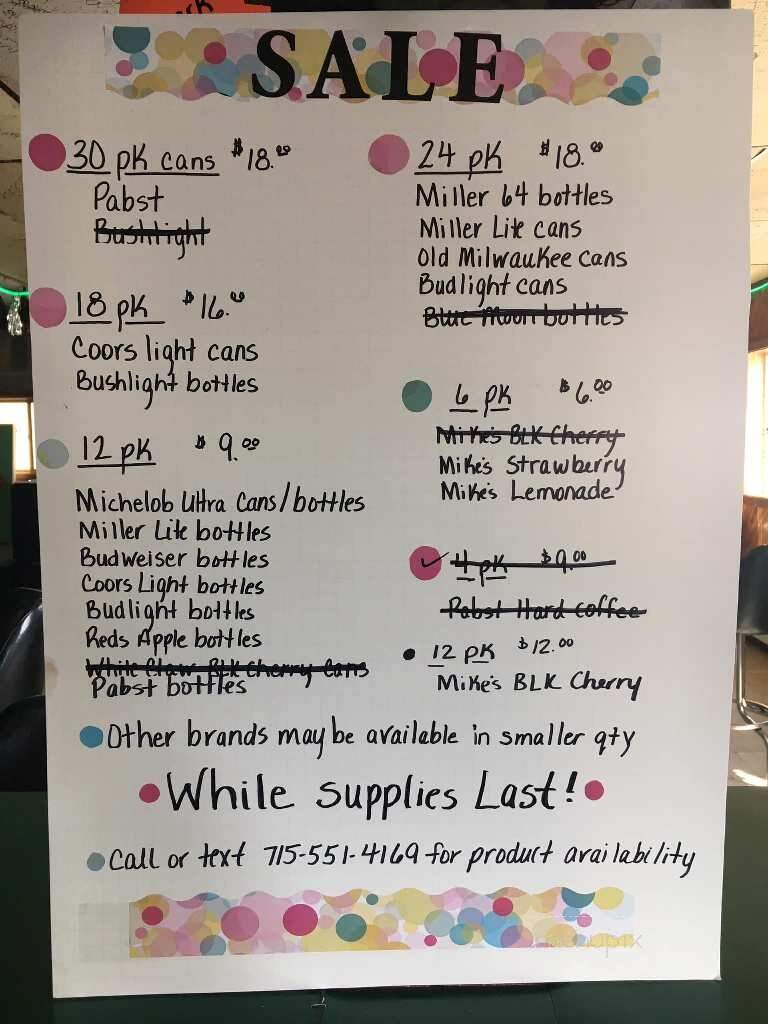 SALE
30 pk cans $18.00
Pabst
Bushlight
18 pk $16.00
Coors light cans
Bushlight bottles
12 pk $9.00
Michelob Ultra Cans/bottles
Miller Lite bottles
Budweiser bottles
Coors Light bottles
Budlight bottles
Reds Apple bottles
White Claw BLK Cherry Cans
Pabst bottles
24 pk $18.00
Miller 64 bottles
Miller Lite cans
Old Milwaukee cans
Budlight cans
Blue Moon bottles
6 pk $6.00
Mike's BLK Cherry
Mike's Strawberry
Mike's Lemonade
4 pk $9.00
Pabst Hard coffee
12 pk $12.00
Mike's BLK Cherry
Other brands may be available in smaller qty
While supplies Last!
Call or text 715-551-4169 for product availability